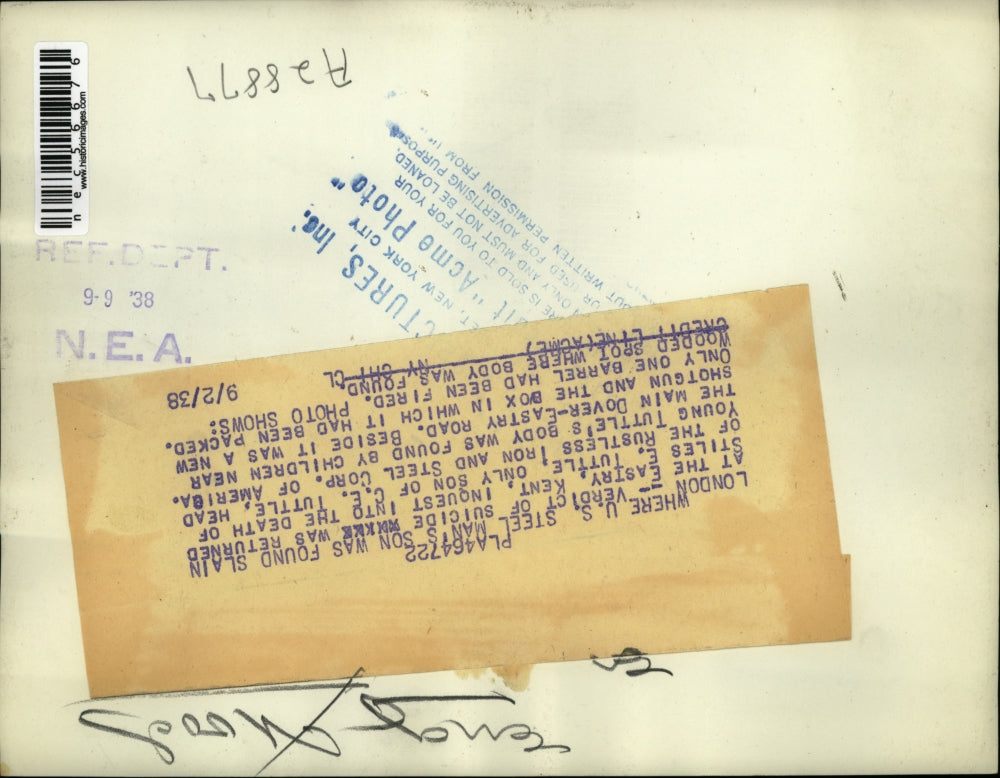 nec56676
www.historicimages.com
A28877
REF. DEPT.
9-9 '38
N.E.A.
CTURES, Inc.
NEW YORK CITY
"Acme Photo"
RE IS SOLD TO YOU FOR YOUR
ONLY AND MUST NOT BE LOANED,
OR USED FOR ADVERTISING PURPOSES
OUT WRITTEN PERMISSION FROM
PLA464722
WHERE U.S. STEEL MAN'S SON WAS FOUND SLAIN
LONDON -- VERDICT OF SUICIDE WAS RETURNED
AT THE EASTRY, KENT, INQUEST INTO THE DEATH OF
STILES E. TUTTLE, ONLY SON OF C.E. TUTTLE, HEAD
OF THE RUSTLESS IRON AND STEEL CORP. OF AMERICA.
YOUNG TUTTLE'S BODY WAS FOUND BY CHILDREN NEAR
THE MAIN DOVER-EASTRY ROAD. BESIDE IT WAS A NEW
SHOTGUN AND THE BOX IN WHICH IT HAD BEEN PACKED.
ONLY ONE BARREL HAD BEEN FIRED. PHOTO SHOWS:
WOODED SPOT WHERE BODY WAS FOUND
CREDIT LINE(ACME) NY CHI CL 9/2/38